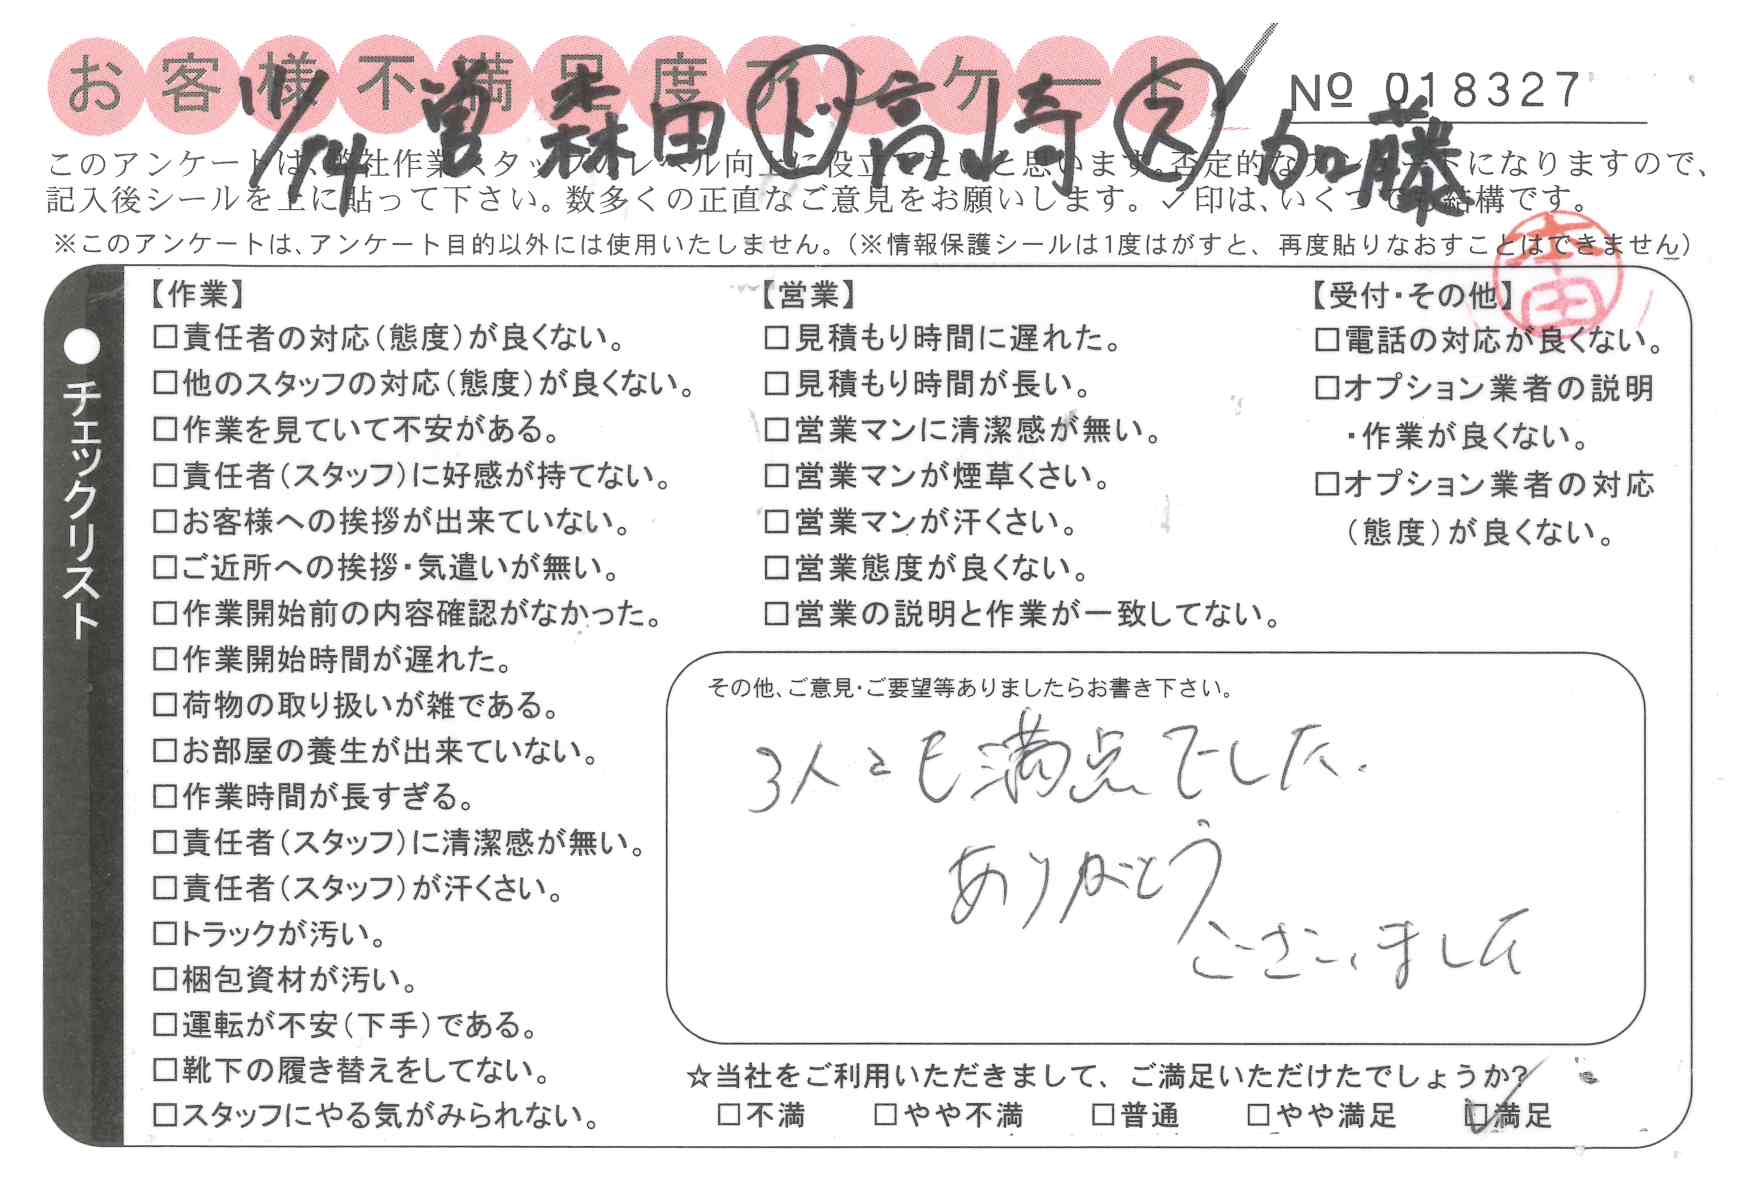 お客様不満足度アンケート
№ 018327
11/14 営 森田 ㋣ 高崎 ㋜ 加藤
このアンケートは、弊社作業スタッフのレベル向上に役立てたいと思います。否定的なアンケートになりますので、
記入後シールを上に貼って下さい。数多くの正直なご意見をお願いします。✓印は、いくつでも結構です。
※このアンケートは、アンケート目的以外には使用いたしません。（※情報保護シールは1度はがすと、再度貼りなおすことはできません）
●チェックリスト
【作業】
□責任者の対応（態度）が良くない。
□他のスタッフの対応（態度）が良くない。
□作業を見ていて不安がある。
□責任者（スタッフ）に好感が持てない。
□お客様への挨拶が出来ていない。
□ご近所への挨拶・気遣いが無い。
□作業開始前の内容確認がなかった。
□作業開始時間が遅れた。
□荷物の取り扱いが雑である。
□お部屋の養生が出来ていない。
□作業時間が長すぎる。
□責任者（スタッフ）に清潔感が無い。
□責任者（スタッフ）が汗くさい。
□トラックが汚い。
□梱包資材が汚い。
□運転が不安（下手）である。
□靴下の履き替えをしてない。
□スタッフにやる気がみられない。
【営業】
□見積もり時間に遅れた。
□見積もり時間が長い。
□営業マンに清潔感が無い。
□営業マンが煙草くさい。
□営業マンが汗くさい。
□営業態度が良くない。
□営業の説明と作業が一致してない。
【受付・その他】
□電話の対応が良くない。
□オプション業者の説明
・作業が良くない。
□オプション業者の対応
（態度）が良くない。
その他、ご意見・ご要望等ありましたらお書き下さい。
3人とも満点でした.
ありがとう
ございました
☆当社をご利用いただきまして、ご満足いただけたでしょうか?
□不満 □やや不満 □普通 □やや満足 ☑満足